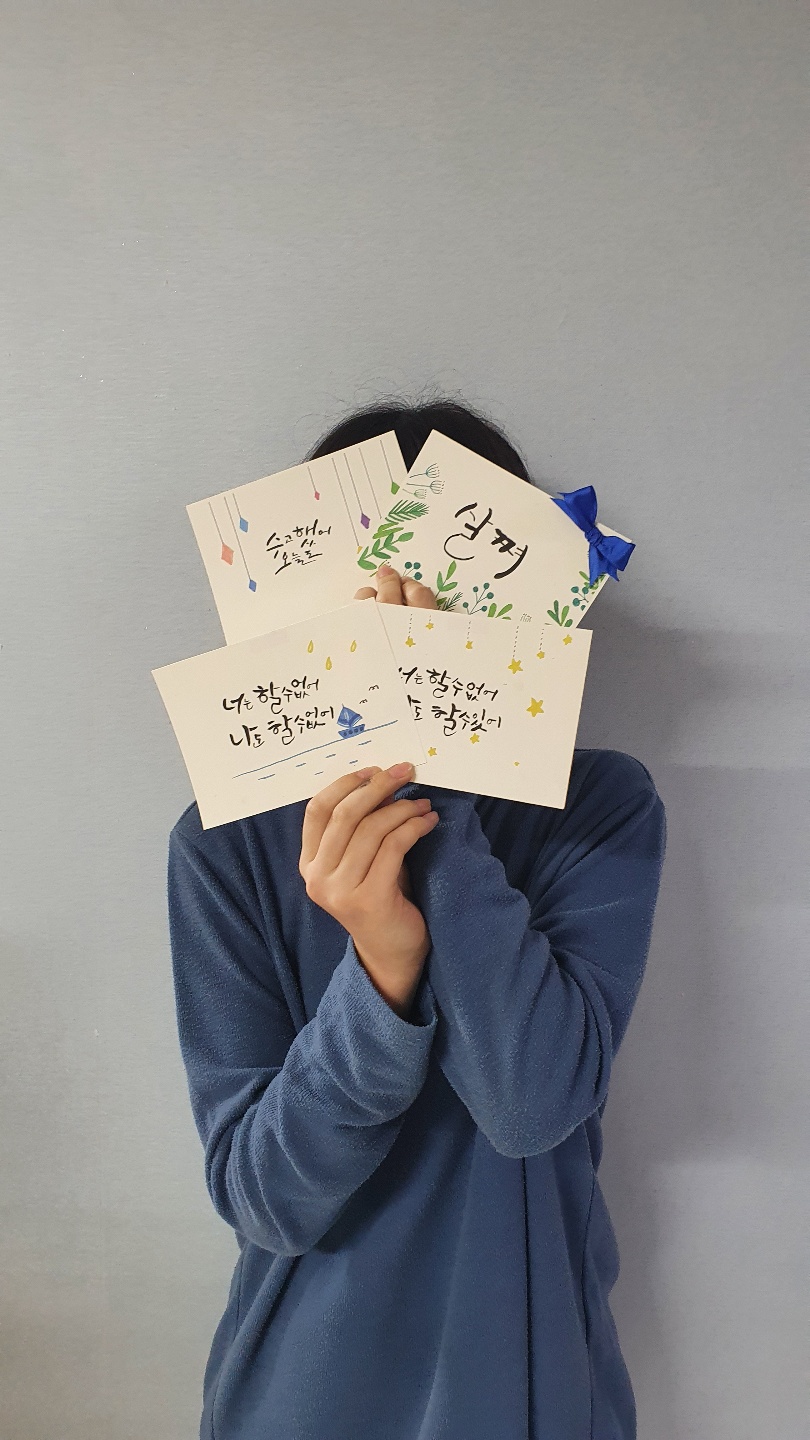 수고했어
오늘도
살쪄
너는 할 수 없어
나도 할 수 없어
너는 할 수 없어
나도 할 수 있어